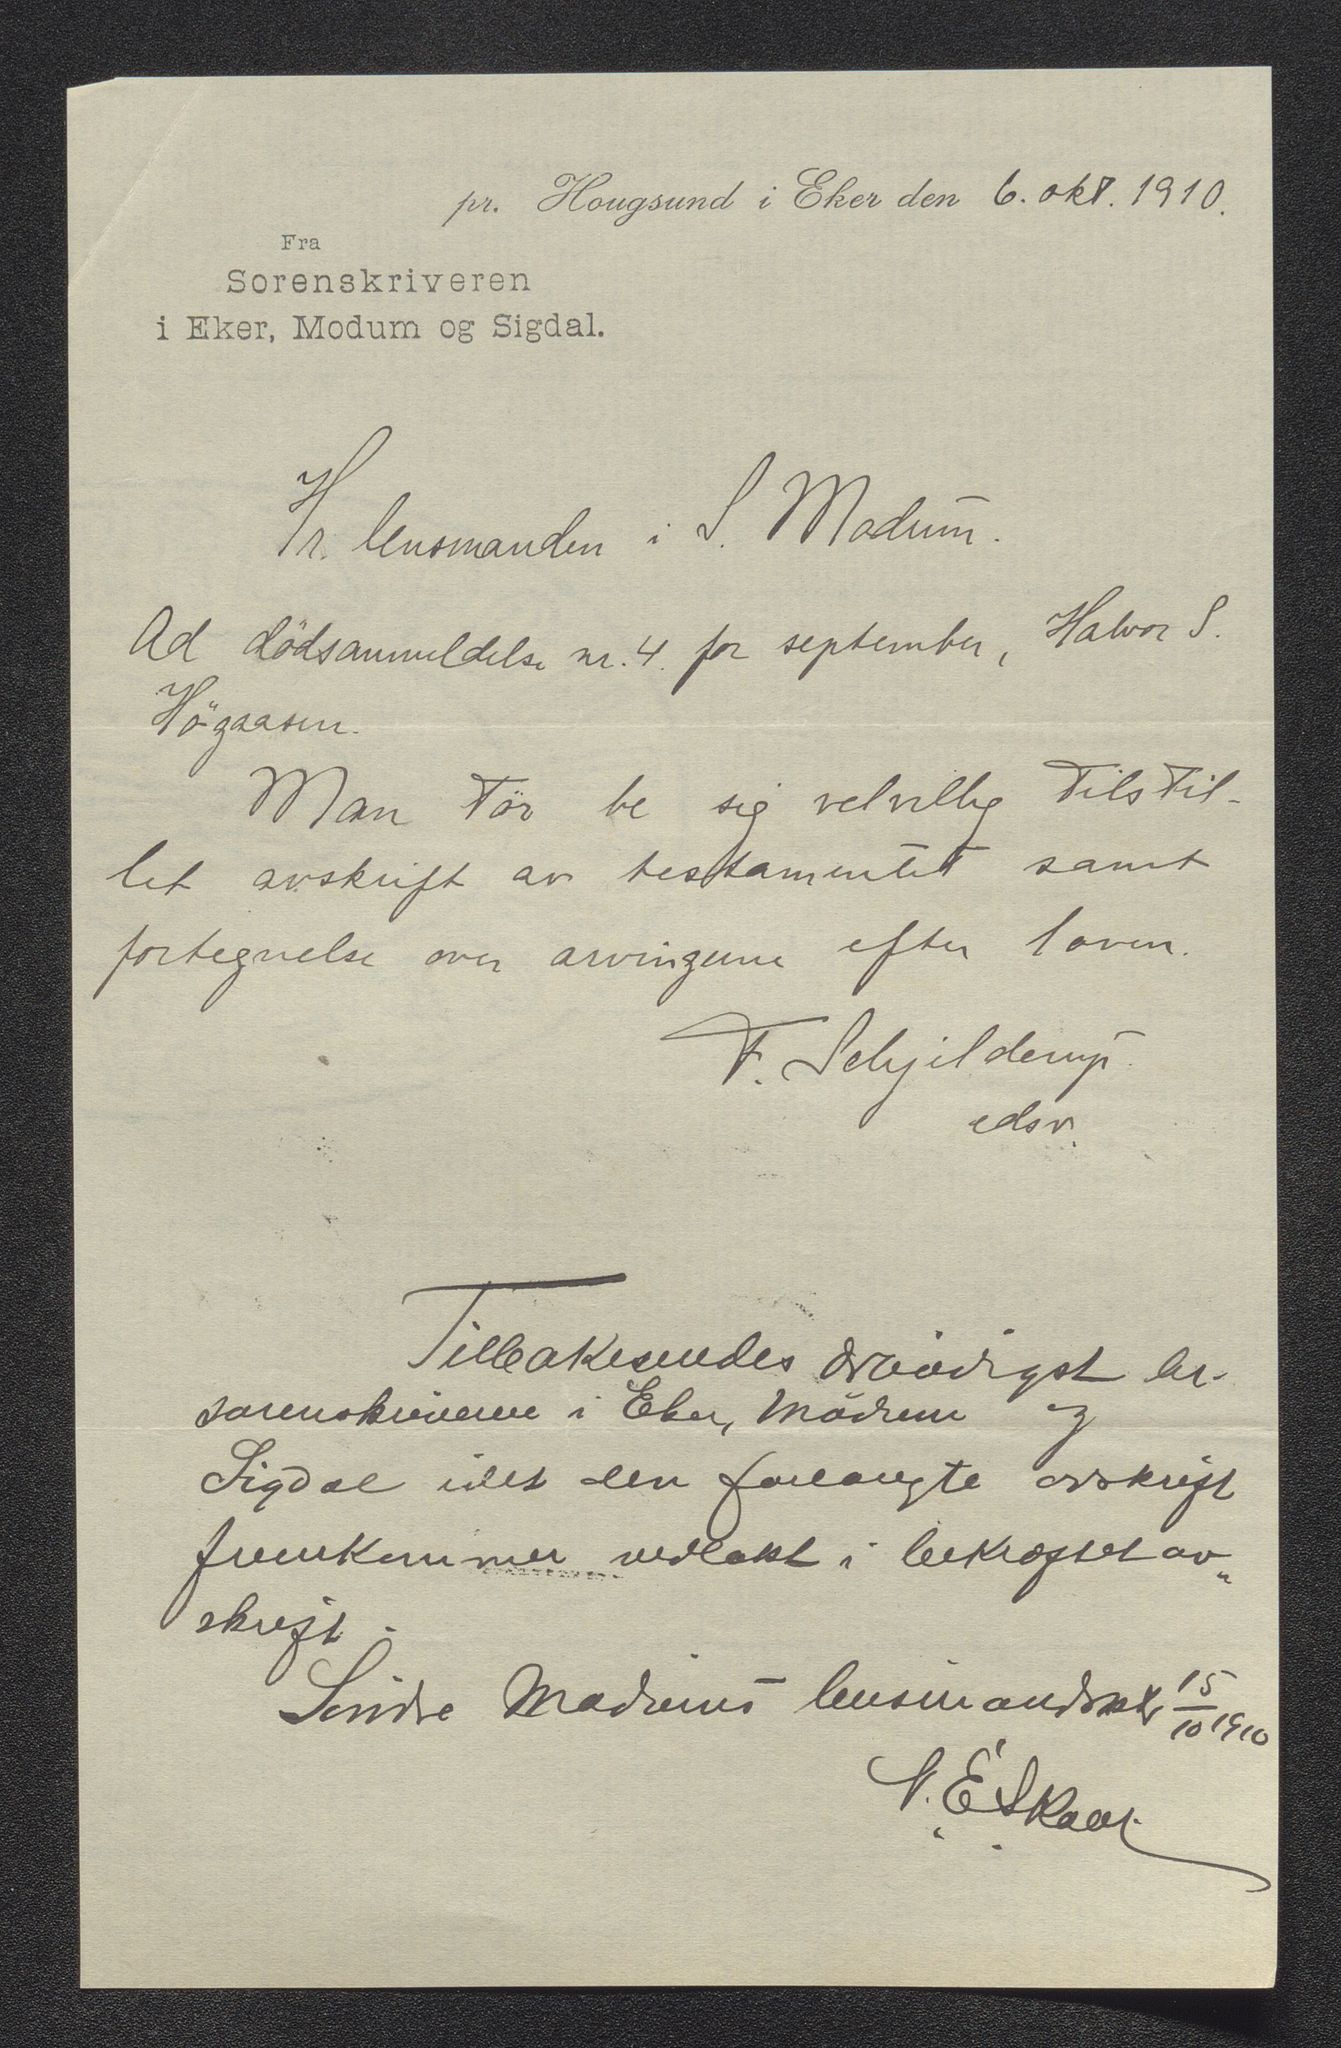 pr. Hougsund i Eker den 6. okt. 1910.
Fra
Sorenskriveren
i Eker, Modum og Sigdal.
Hr. lensmanden i S. Modum.
Ad dödsanmeldelse nr. 4. for september, Halvor S.
Högaasen.
Man tör be sig velvillig tilstil-
let avskrift av testamentet samt
fortegnelse over arvingerne efter loven.
F. Schjelderup.
edsv.
Tilbakesendes ærbödigst hr.
sorenskriveren i Eker, Modum og
Sigdal idet den forlangte avskrift
fremkommer vedlakt i bekræftet av„
skrift.
Söndre Modums lensmandskt 15/10 1910
N. E. Skaar